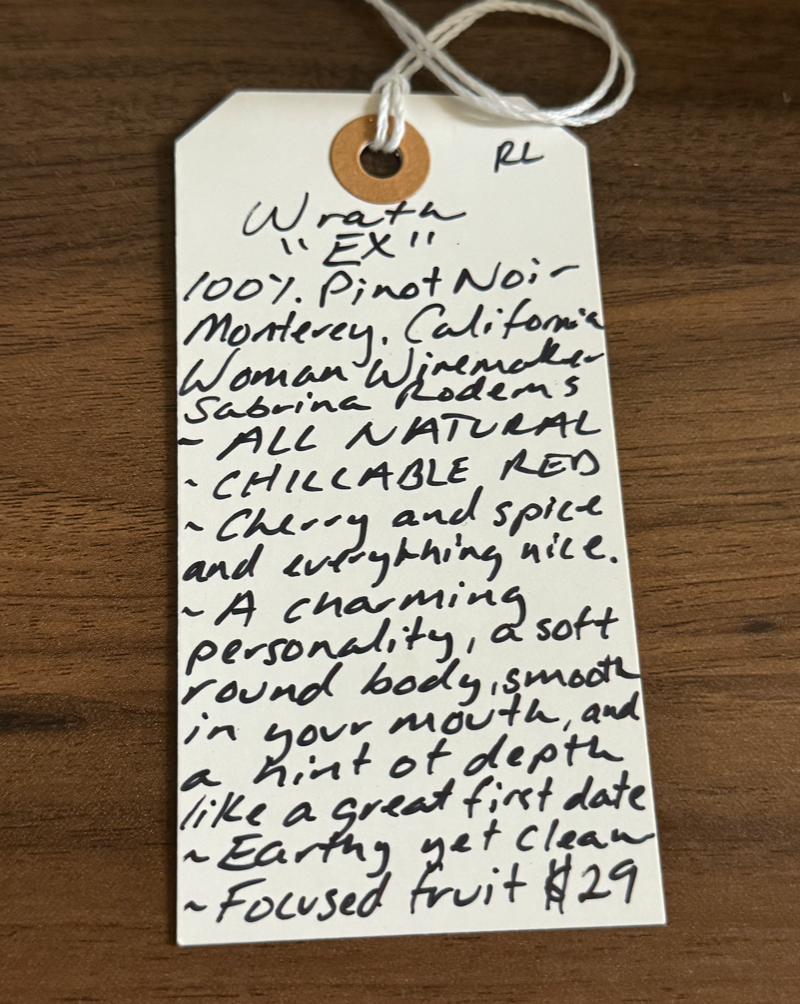 RL
Wrath
"EX"
100%. Pinot Noir
Monterey, California
Woman Winemaker
Sabrina Rodems
~ ALL NATURAL
~ CHILLABLE RED
~ Cherry and spice
and everything nice.
~ A charming
personality, a soft
round body, smooth
in your mouth, and
a hint of depth
like a great first date
~ Earthy yet clean
~ Focused fruit $29